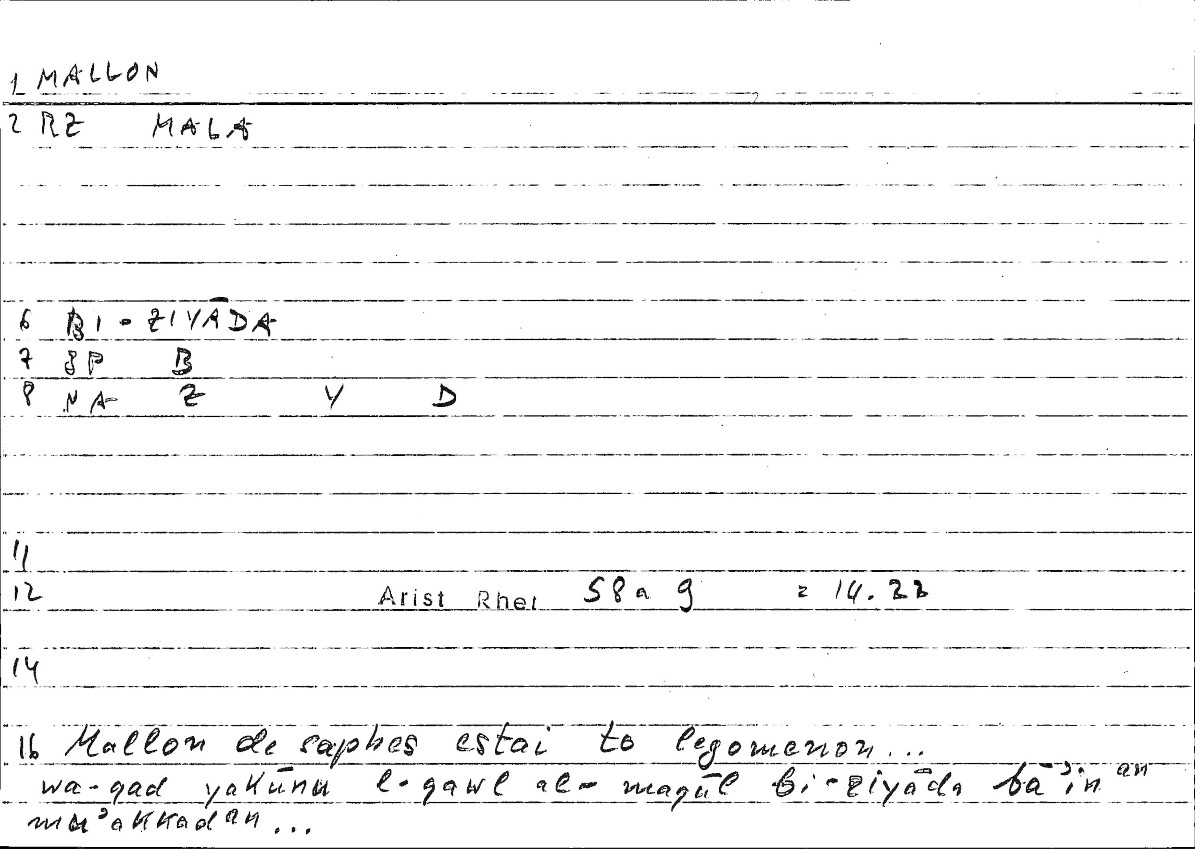 1 MALLON
2 RZ MALA
6 BI-ZIYĀDA
7 SP B
8 NA Z Y D
11
12 Arist Rhet 58a 9 = 14.22
14
16 Mallon de saphes estai to legomenon...
wa-qad yakūnu l-qawl al-maqūl bi-ziyāda bāʾin an
muʾakkadan...